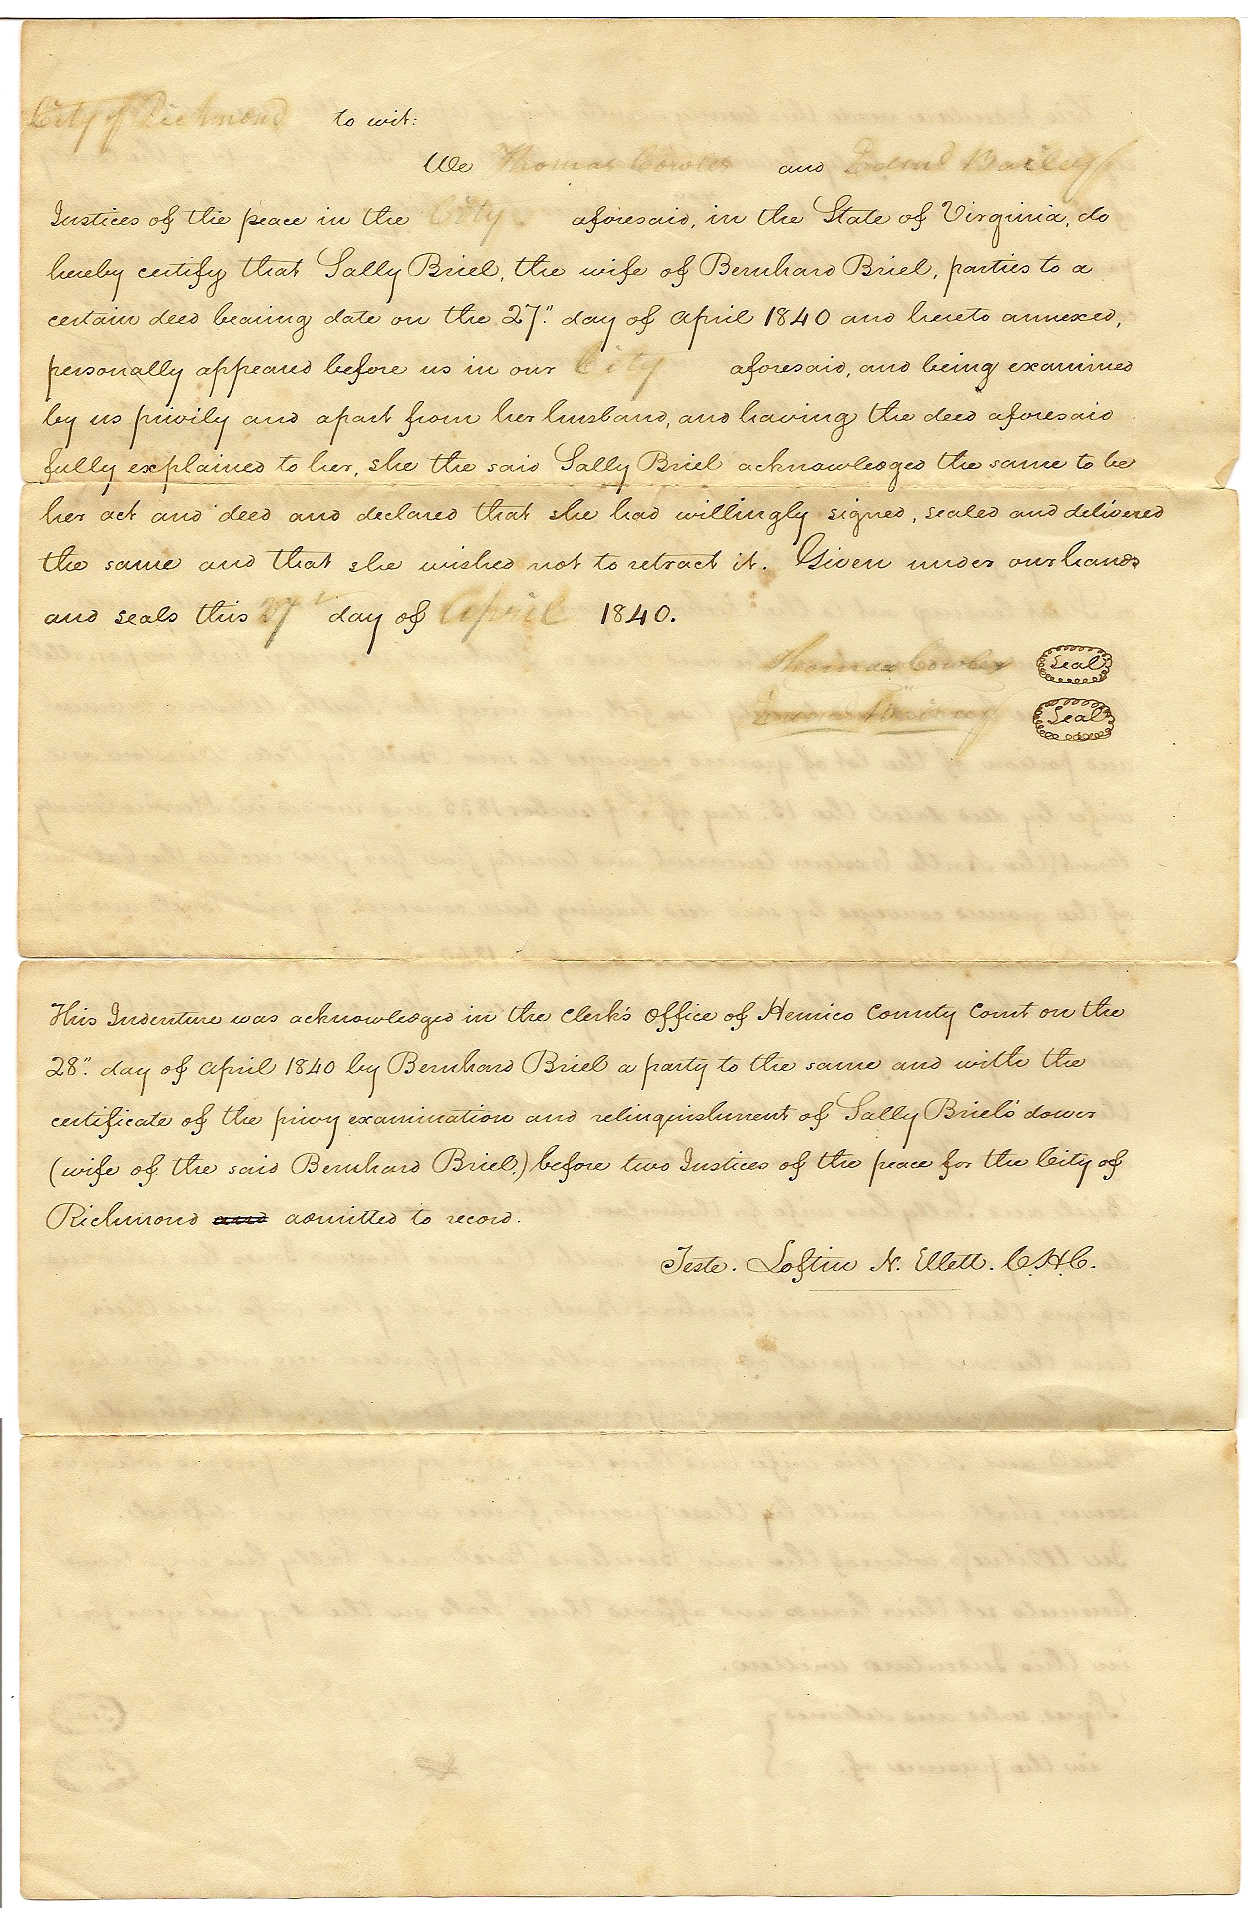 City of Richmond to wit:
We Thomas Cowles and Edmd Bailey
Justices of the peace in the City aforesaid, in the State of Virginia, do
hereby certify that Sally Briel, the wife of Bernhard Briel, parties to a
certain deed bearing date on the 27". day of April 1840 and hereto annexed,
personally appeared before us in our City aforesaid, and being examined
by us privily and apart from her husband, and having the deed aforesaid
fully explained to her, she the said Sally Briel acknowledged the same to be
her act and deed and declared that she had willingly signed, sealed and delivered
the same and that she wished not to retract it. Given under our hands
and seals this 27th day of April 1840.
Thomas Cowles Seal
Bailey Seal
This Indenture was acknowledged in the clerk's office of Henrico County Court on the
28". day of April 1840 by Bernhard Briel a party to the same and with the
certificate of the privy examination and relinquishment of Sally Briel's dower
(wife of the said Bernhard Briel,) before two Justices of the peace for the City of
Richmond and admitted to record.
Teste. Loftin N. Ellett. C.H.C.